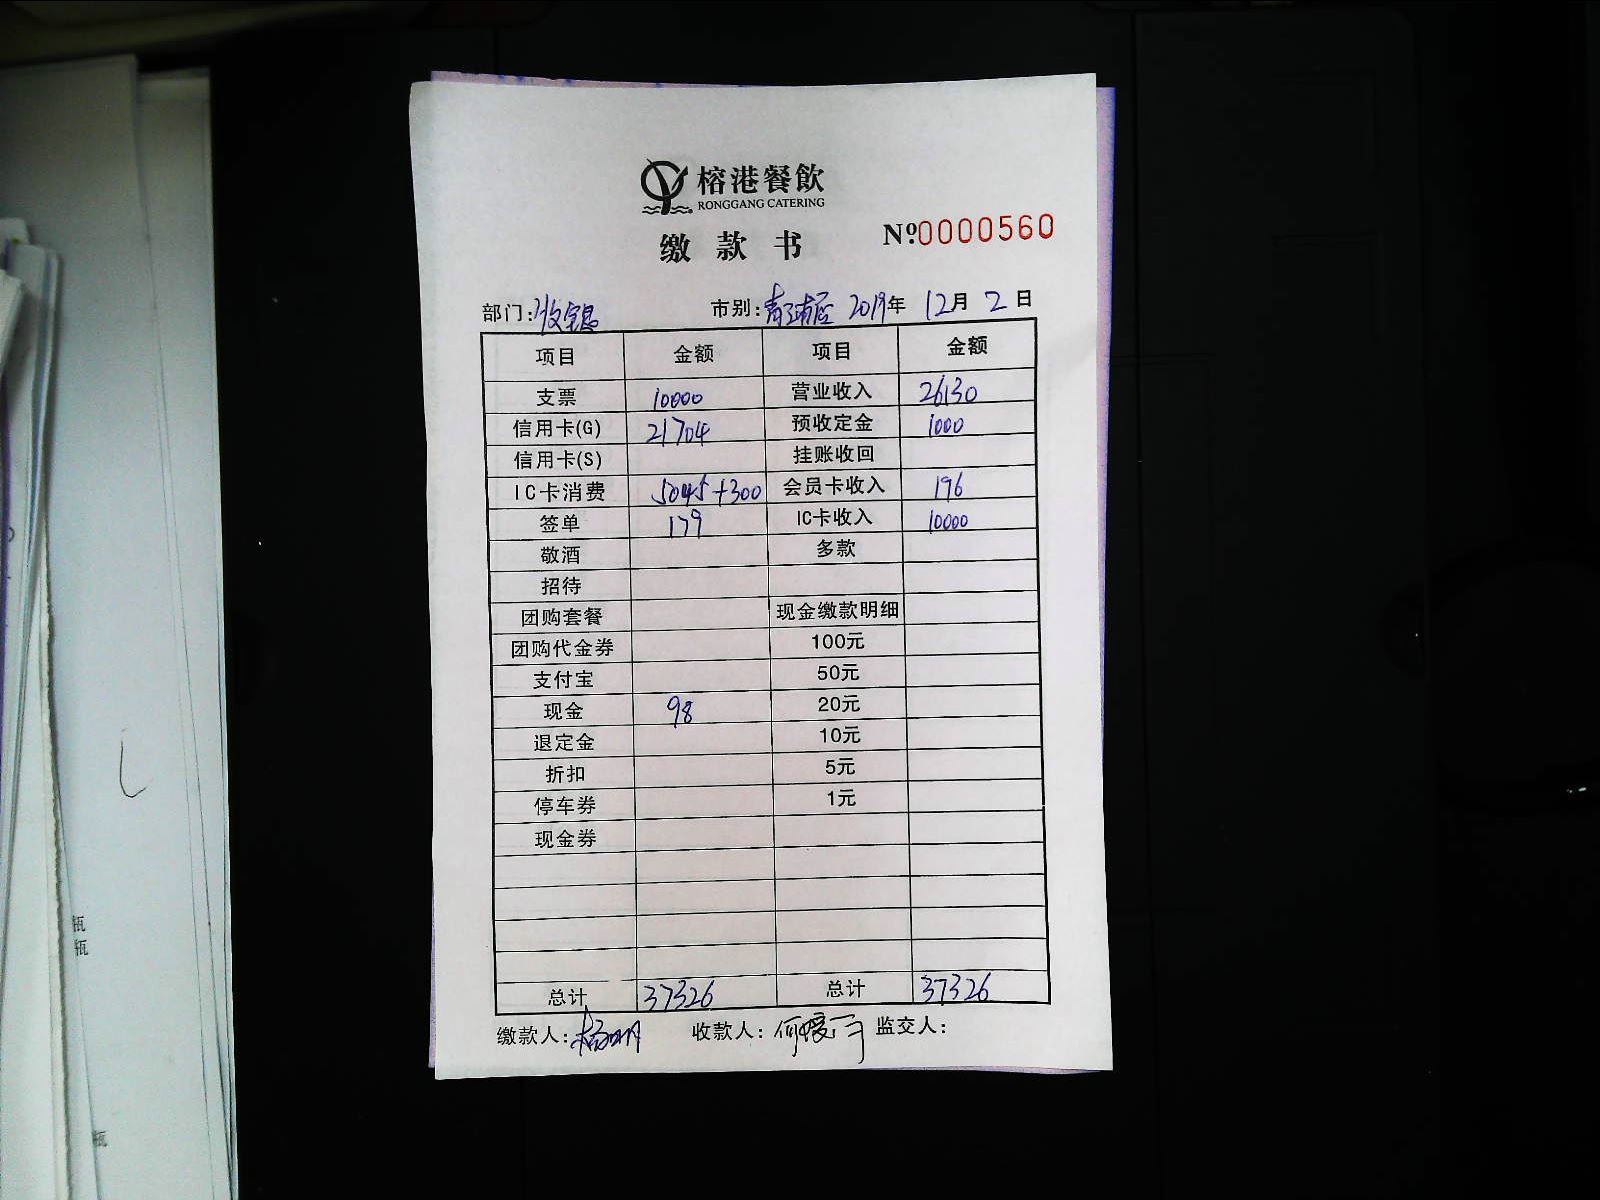 榕港餐飲
RONGGANG CATERING
缴款书 №0000560
部门:收银 市别:青浦店 2019年 12月 2日
项目 金额 项目 金额
支票 10000 营业收入 26130
信用卡(G) 21704 预收定金 1000
信用卡(S) 挂账收回
IC卡消费 5045+300 会员卡收入 196
签单 179 IC卡收入 10000
敬酒 多款
招待
团购套餐 现金缴款明细
团购代金券 100元
支付宝 50元
现金 98 20元
退定金 10元
折扣 5元
停车券 1元
现金券
总计 37326 总计 37326
缴款人: 收款人: 监交人:
瓶
瓶
瓶